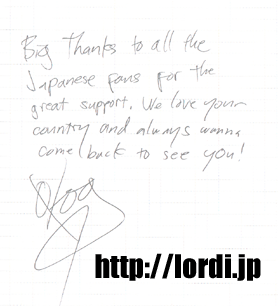 Big Thanks to all the
Japanese fans for the
great support. We love your
country and always wanna
come back to see you!
http://lordi.jp